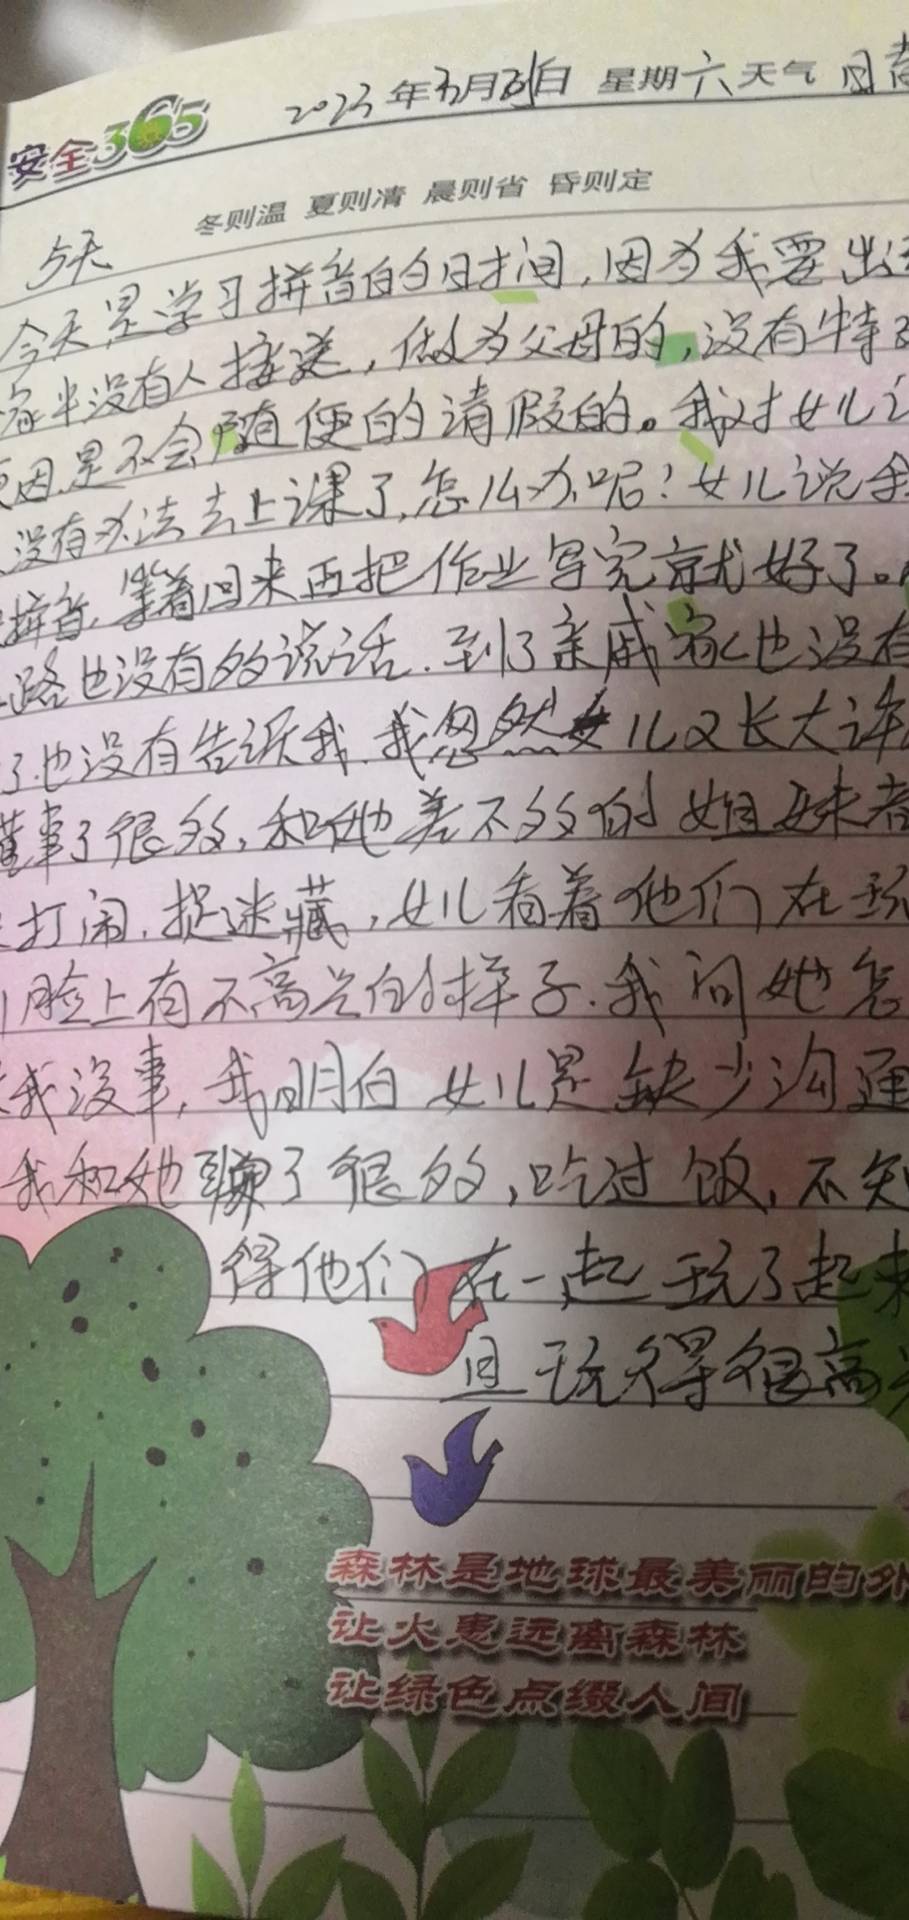 安全365
2023年 月 日 星期六天气
冬则温 夏则清 晨则省 昏则定
5天
今天是学习拼音的日时间,因为我要出
没有人接送,做为父母的,没有特
因是不会随便的请假的。我对女儿
没有办法去上课了,怎么办呢?女儿说我
拼音,等着回来再把作业写完就好了。
路也没有多说话.到了亲戚家也没有
了也没有告诉我.我忽然女儿又长大许
懂事了很多,和她差不多的姐妹都
打闹.捉迷藏,女儿看着他们在玩
脸上有不高兴的样子.我问她怎
我没事,我明白女儿是缺少沟通
我和她聊了很多,吃过饭,不知
得他们在一起玩了起来
且玩得很高兴
森林是地球最美丽的外
让火患远离森林
让绿色点缀人间